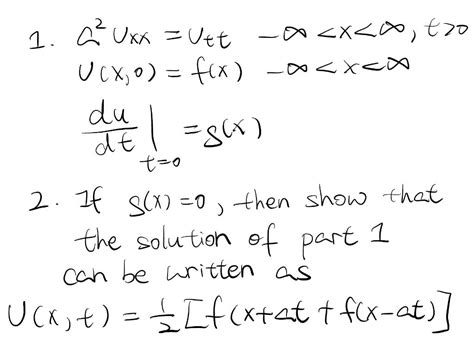 1. a²Uxx = Utt -∞<x<∞, t>0
U(x,0) = f(x) -∞<x<∞
du/dt |t=0 = g(x)
2. If g(x)=0, then show that
the solution of part 1
can be written as
U(x,t) = 1/2 [f(x+at + f(x-at)]